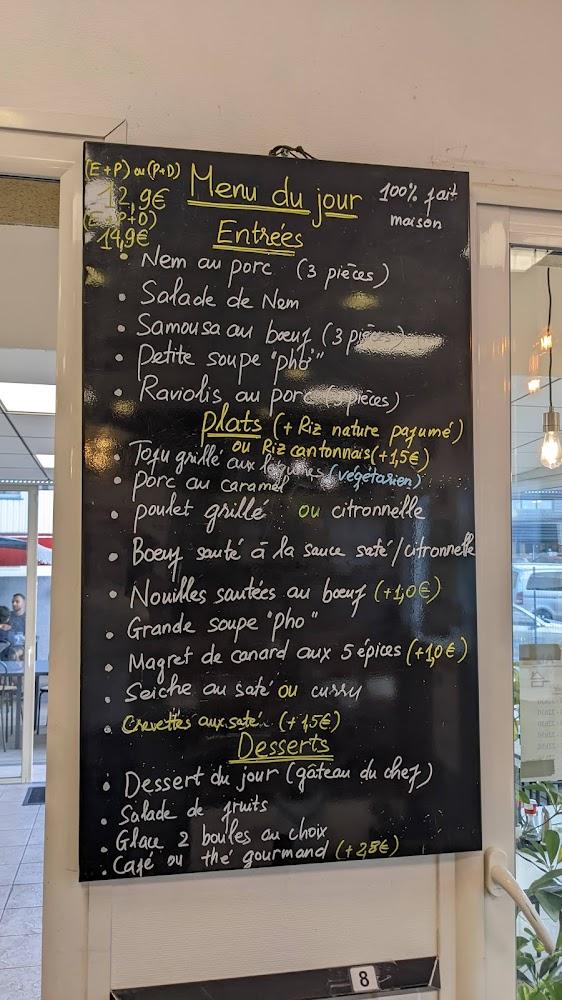 (E+P) ou (P+D)
12,9€
(E+P+D)
14,9€
Menu du jour
100% fait
maison
Entrées
• Nem au porc (3 pièces)
• Salade de Nem
• Samousa au bœuf (3 pièces)
• Petite soupe "pho"
• Raviolis au porc (3 pièces)
Plats (+ Riz nature pafumé)
ou Riz cantonnais (+1,5€)
• Tofu grillé aux légumes (végétarien)
• porc au caramel
• poulet grillé ou citronnelle
• Bœuf sauté à la sauce saté/citronnelle
• Nouilles sautées au bœuf (+1,0€)
• Grande soupe "pho"
• Magret de canard aux 5 épices (+1,0€)
• Seiche au saté ou curry
• Crevettes aux saté (+1,5€)
Desserts
• Dessert du jour (gâteau du chef)
• Salade de fruits
• Glace 2 boules au choix
• Café ou thé gourmand (+2,8€)
8